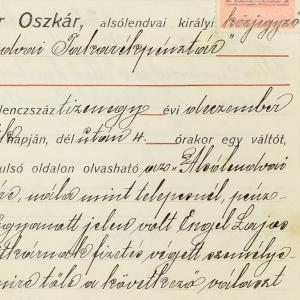 r Oszkár, alsólendvai királyi közjegyző
Takarékpénztár"
lenczszáz tizenegy évi deczember
napján, dél után 4. órakor egy váltót,
ulsó oldalon olvasható az Alsólendvai
nála mint telepesnél, pénz-
ugyanott jelen volt Engel Lajos
titkárnak fizetés végett személye-
mire tőle a következő választ